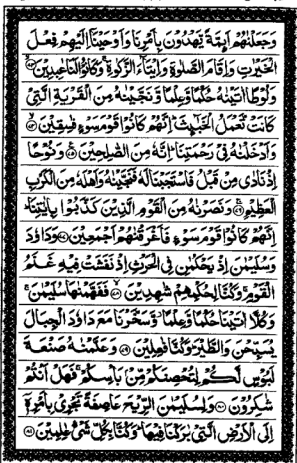 وَجَعَلْنٰهُمْ اَئِمَّةً يَّهْدُوْنَ بِاَمْرِنَا وَاَوْحَيْنَاۤ اِلَيْهِمْ فِعْلَ
الْخَيْرٰتِ وَاِقَامَ الصَّلٰوةِ وَاِيْتَآءَ الزَّكٰوةِ ۚ وَكَانُوْا لَنَا عٰبِدِيْنَ ۙ﴿۷۳﴾
وَلُوْطًا اٰتَيْنٰهُ حُكْمًا وَّعِلْمًا وَّنَجَّيْنٰهُ مِنَ الْقَرْيَةِ الَّتِيْ
كَانَتْ تَّعْمَلُ الْخَبٰٓئِثَ ؕ اِنَّهُمْ كَانُوْا قَوْمَ سَوْءٍ فٰسِقِيْنَ ۙ﴿۷۴﴾
وَاَدْخَلْنٰهُ فِيْ رَحْمَتِنَا ؕ اِنَّهٗ مِنَ الصّٰلِحِيْنَ ﴿۷۵﴾ وَنُوْحًا
اِذْ نَادٰى مِنْ قَبْلُ فَاسْتَجَبْنَا لَهٗ فَنَجَّيْنٰهُ وَاَهْلَهٗ مِنَ الْكَرْبِ
الْعَظِيْمِ ۚ﴿۷۶﴾ وَنَصَرْنٰهُ مِنَ الْقَوْمِ الَّذِيْنَ كَذَّبُوْا بِاٰيٰتِنَا ؕ
اِنَّهُمْ كَانُوْا قَوْمَ سَوْءٍ فَاَغْرَقْنٰهُمْ اَجْمَعِيْنَ ﴿۷۷﴾ وَدَاوٗدَ
وَسُلَيْمٰنَ اِذْ يَحْكُمٰنِ فِي الْحَرْثِ اِذْ نَفَشَتْ فِيْهِ غَنَمُ
الْقَوْمِ ۚ وَكُنَّا لِحُكْمِهِمْ شٰهِدِيْنَ ۙ﴿۷۸﴾ فَفَهَّمْنٰهَا سُلَيْمٰنَ ۚ
وَكُلًّا اٰتَيْنَا حُكْمًا وَّعِلْمًا ؗ وَّسَخَّرْنَا مَعَ دَاوٗدَ الْجِبَالَ
يُسَبِّحْنَ وَالطَّيْرَ ؕ وَكُنَّا فٰعِلِيْنَ ﴿۷۹﴾ وَعَلَّمْنٰهُ صَنْعَةَ
لَبُوْسٍ لَّكُمْ لِتُحْصِنَكُمْ مِّنْۢ بَاْسِكُمْ ۚ فَهَلْ اَنْتُمْ
شٰكِرُوْنَ ﴿۸۰﴾ وَلِسُلَيْمٰنَ الرِّيْحَ عَاصِفَةً تَجْرِيْ بِاَمْرِهٖۤ
اِلَى الْاَرْضِ الَّتِيْ بٰرَكْنَا فِيْهَا ؕ وَكُنَّا بِكُلِّ شَيْءٍ عٰلِمِيْنَ ﴿۸۱﴾